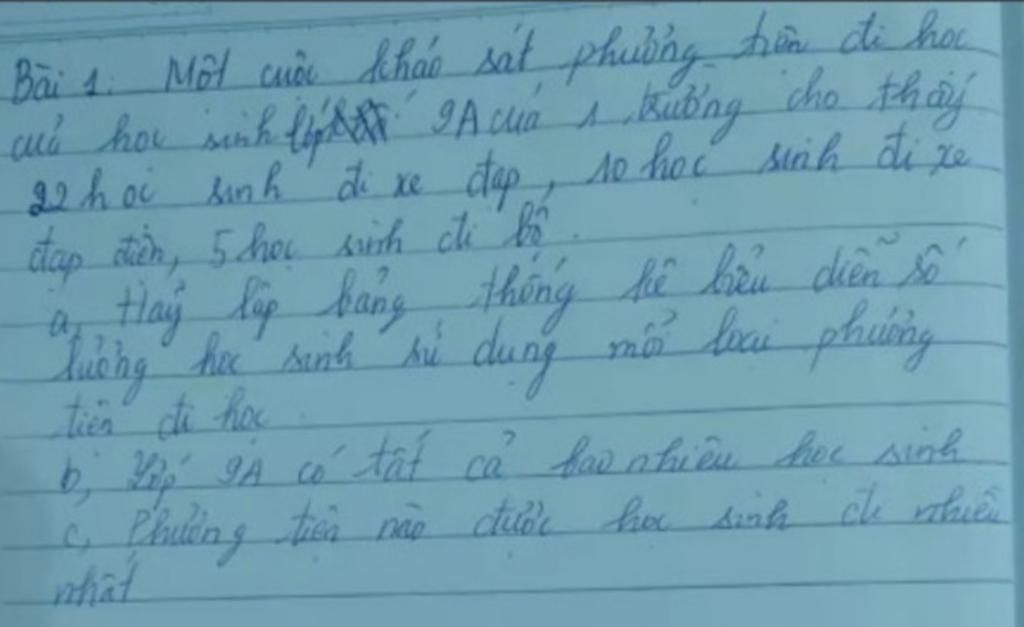 Bài 1. Một cuộc khảo sát phương tiện đi học
của học sinh lớp 9A của 1 trường cho thấy
22 học sinh đi xe đạp, 10 học sinh đi xe
đạp điện, 5 học sinh đi bộ.
a, Hãy lập bảng thống kê biểu diễn số
lượng học sinh sử dụng mỗi loại phương
tiện đi học.
b, Lớp 9A có tất cả bao nhiêu học sinh
c, Phương tiện nào được học sinh đi nhiều
nhất